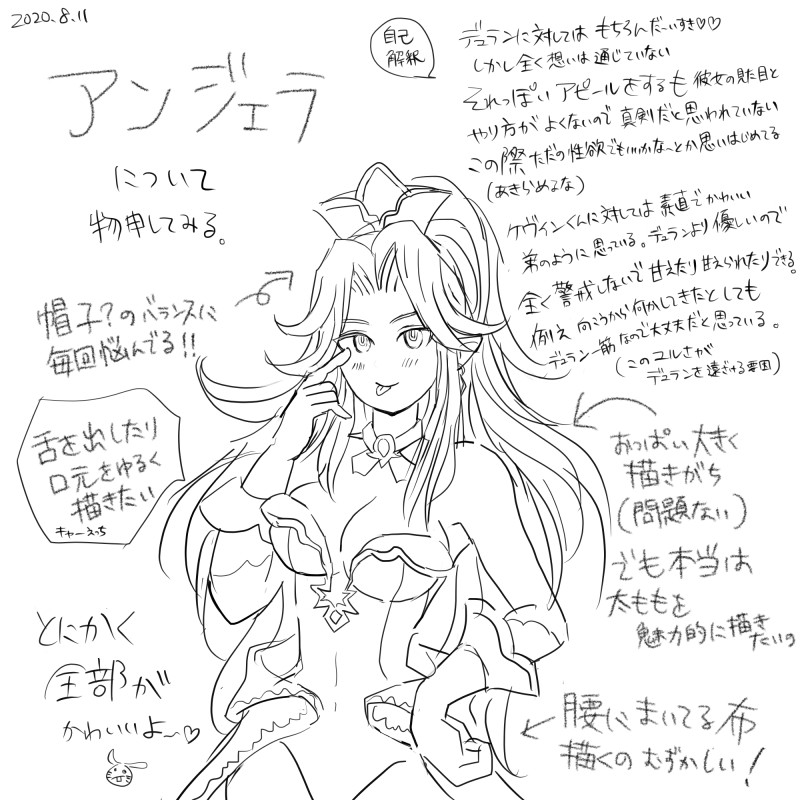 2020.8.11
アンジェラ
について
物申してみる。
自己
解釈
デュランに対しては もちろんだーいすき♡♡
しかし全く想いは通じていない
それっぽい アピールをするも 彼女の見た目と
やり方が よくないので 真剣だと思われていない
この際 ただの性欲でもいいかな〜とか思いはじめてる
(あきらめてるな)
ケヴィンくんに対しては 素直でかわいい
弟のように 思っている。デュランより優しいので
全く警戒しないで 甘えたり甘えられたりできる。
例え 向こうから何かしてきたとしても
デュラン一筋 なので大丈夫だと思っている。
(このユルさが
デュランを遠ざける要因)
帽子?のバランスに
毎回悩んでる!!
舌を出したり
口元をゆるく
描きたい
キャーえっち
おっぱい大きく
描きがち
(問題ない)
でも本当は
太ももを
魅力的に描き
たいの
とにかく
全部が
かわいいよ〜♡
腰にまいてる布
描くの むずかしい!